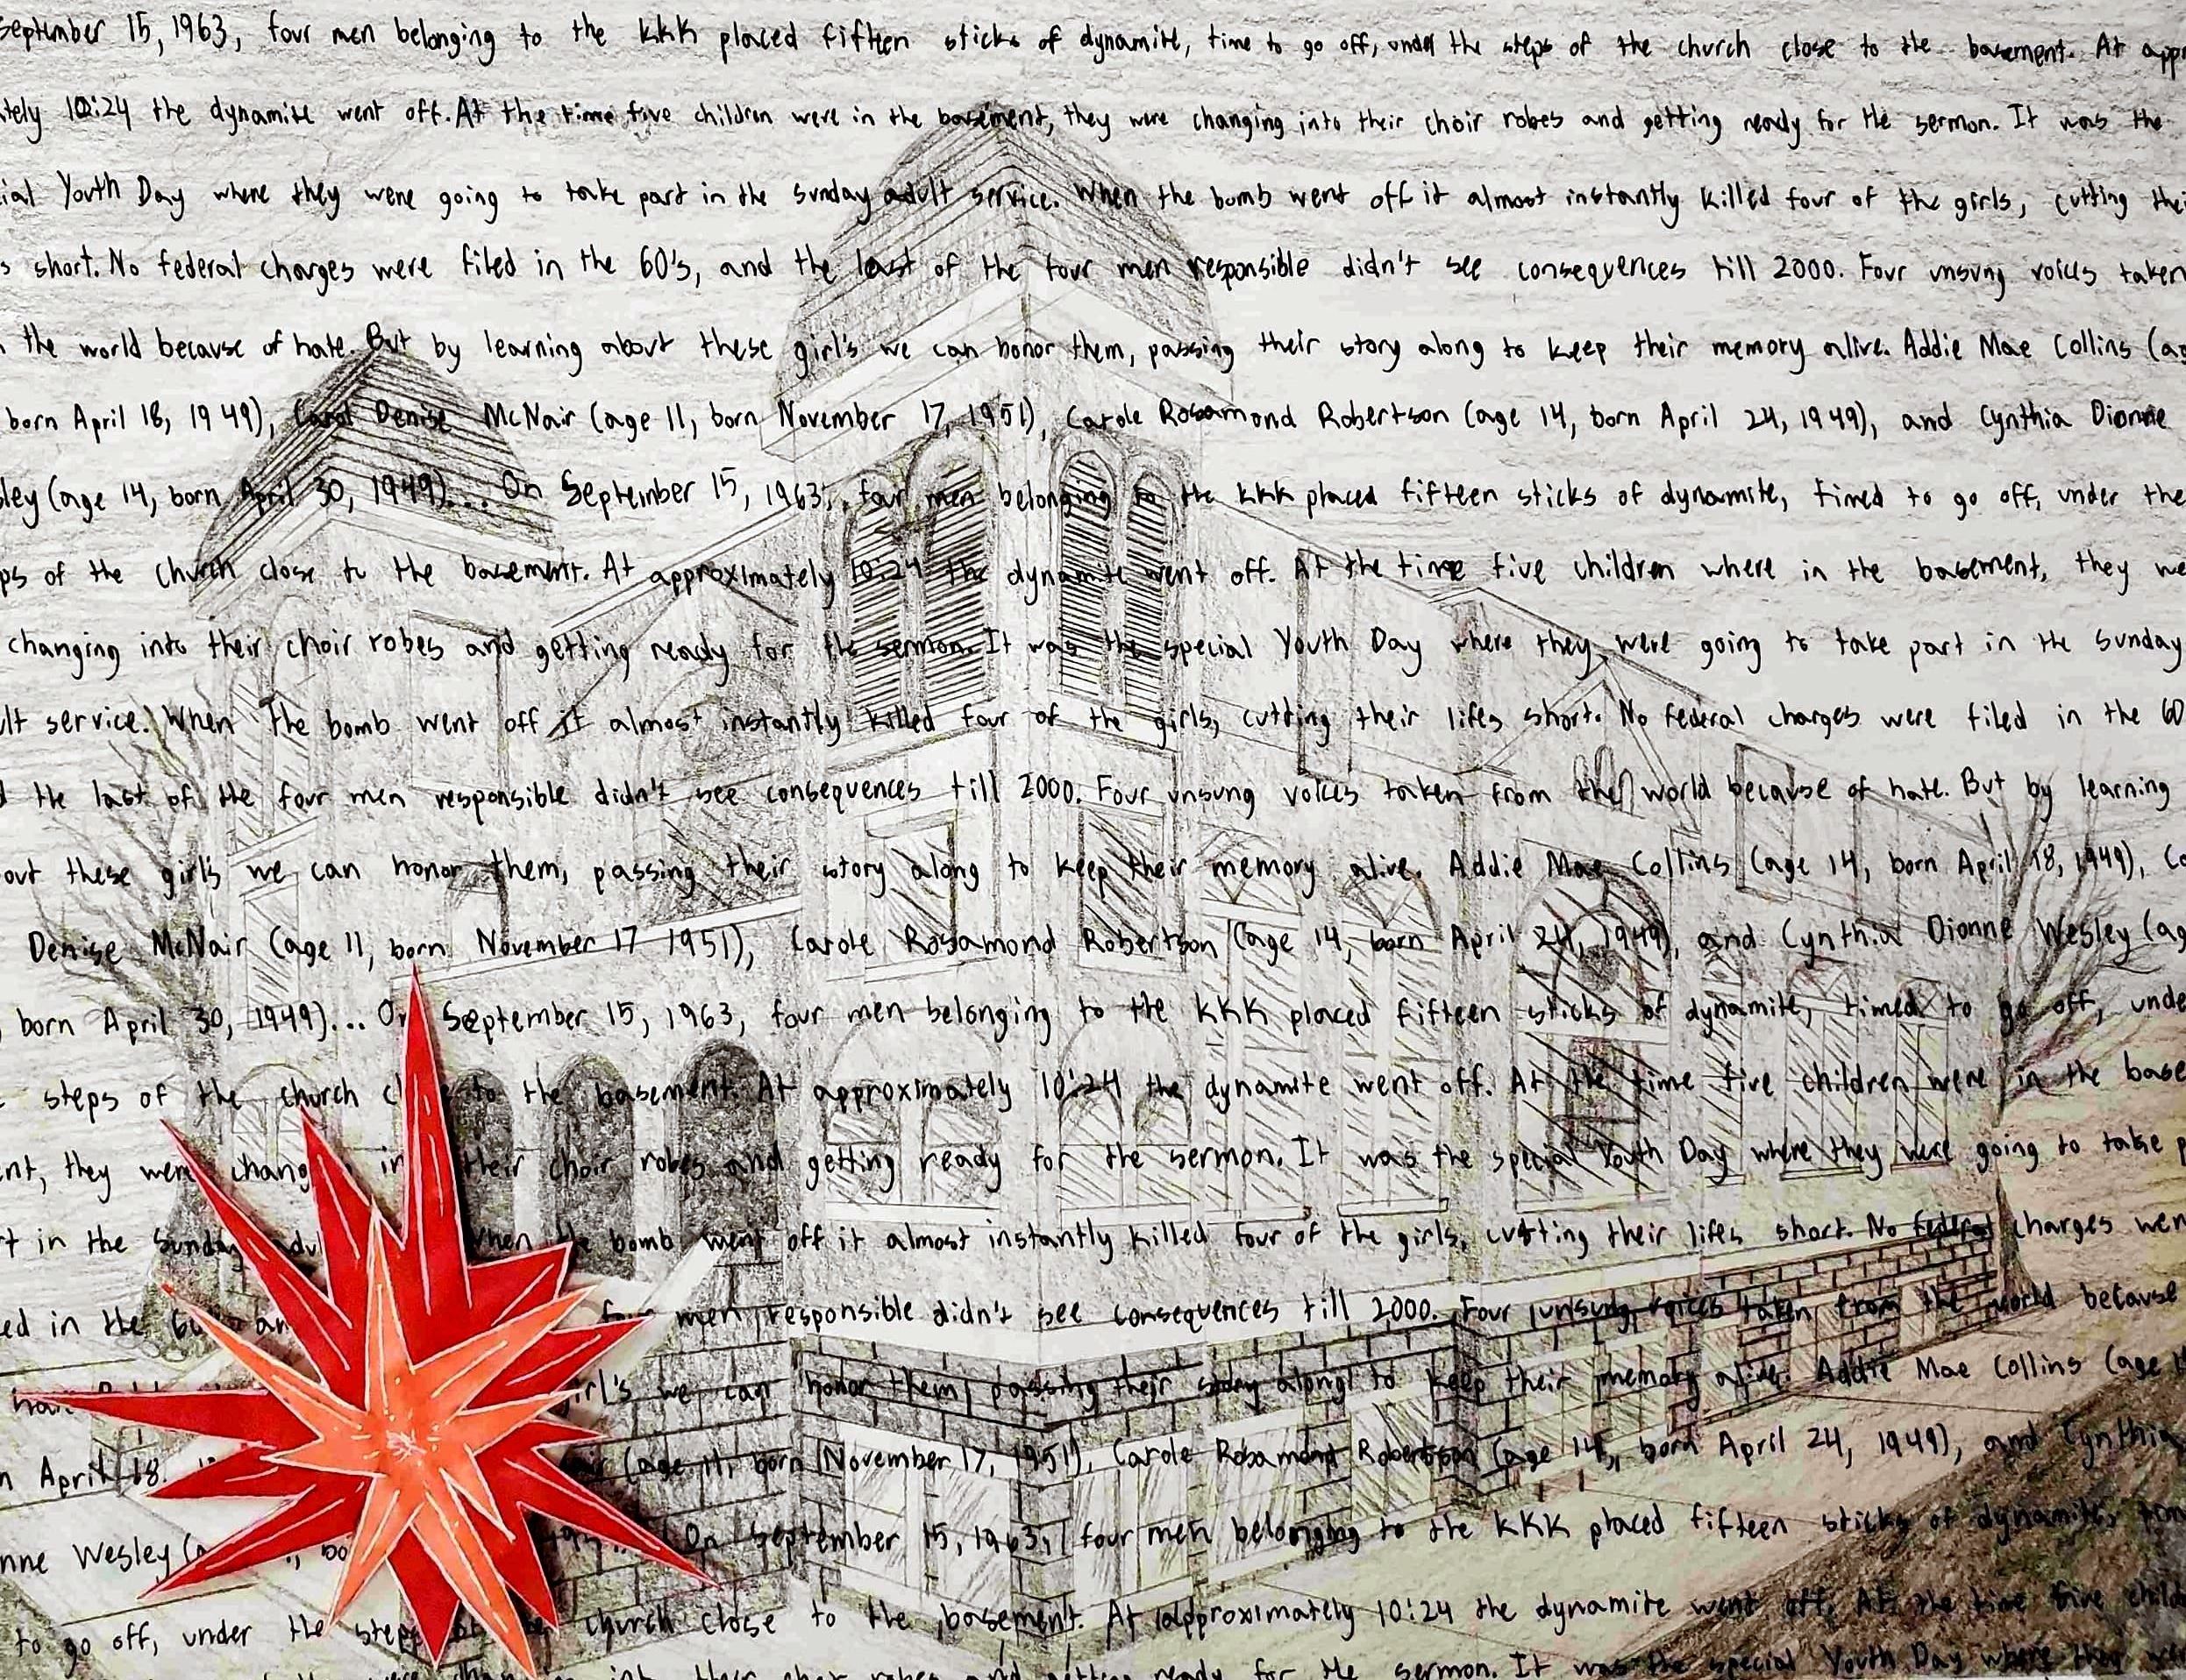 September 15, 1963, four men belonging to the KKK placed fifteen sticks of dynamite, time to go off, under the steps of the church close to the basement. At app
tely 10:24 the dynamite went off. At the time five children were in the basement, they were changing into their choir robes and getting ready for the sermon. It was the
ial Youth Day where they were going to take part in the Sunday adult service. When the bomb went off it almost instantly killed four of the girls, cutting thei
s short. No federal charges were filed in the 60's, and the last of the four men responsible didn't see consequences till 2000. Four unsung voices taken
the world because of hate. But by learning about these girl's we can honor them, passing their story along to keep their memory alive. Addie Mae Collins (ag
born April 18, 1949), Carol Denise McNair (age 11, born November 17, 1951), Carole Rosamond Robertson (age 14, born April 24, 1949), and Cynthia Dionne
sley (age 14, born April 30, 1949)... On September 15, 1963, four men belonging to the KKK placed fifteen sticks of dynamite, timed to go off, under the
ps of the church close to the basement. At approximately 10:24 the dynamite went off. At the time five children where in the basement, they we
changing into their choir robes and getting ready for the sermon. It was the special Youth Day where they were going to take part in the Sunday
ult service. When the bomb went off it almost instantly killed four of the girls, cutting their lifes short. No federal charges were filed in the 60
d the last of the four men responsible didn't see consequences till 2000. Four unsung voices taken from the world because of hate. But by learning
out these girl's we can honor them, passing their story along to keep their memory alive. Addie Mae Collins (age 14, born April 18, 1949), Ca
Denise McNair (age 11, born November 17 1951), Carole Rosamond Robertson (age 14, born April 24, 1949), and Cynthia Dionne Wesley (ag
born April 30, 1949)... On September 15, 1963, four men belonging to the KKK placed fifteen sticks of dynamite, timed to go off, unde
steps of the church c to the basement. At approximately 10:24 the dynamite went off. At the time five children were in the base
nt, they were chang in their choir robes and getting ready for the sermon. It was the special Youth Day where they were going to take p
t in the Sunday adul When the bomb went off it almost instantly killed four of the girls, cutting their lifes short. No federal charges wer
ed in the 60 an four men responsible didn't see consequences till 2000. Four unsung voices taken from the world because
girl's we can honor them, passing their story along to keep their memory alive. Addie Mae Collins (age 1
n April 18. (age 11, born November 17, 1951), Carole Rosamond Robertson (age 14, born April 24, 1949), and Cynthia
nne Wesley (a bo On September 15, 1963, four men belonging to the KKK placed fifteen sticks of dynamite,
to go off, under the steps church close to the basement. At approximately 10:24 the dynamite went off. At the time five child
choir robes and getting ready for the sermon. It was the special Youth Day where they